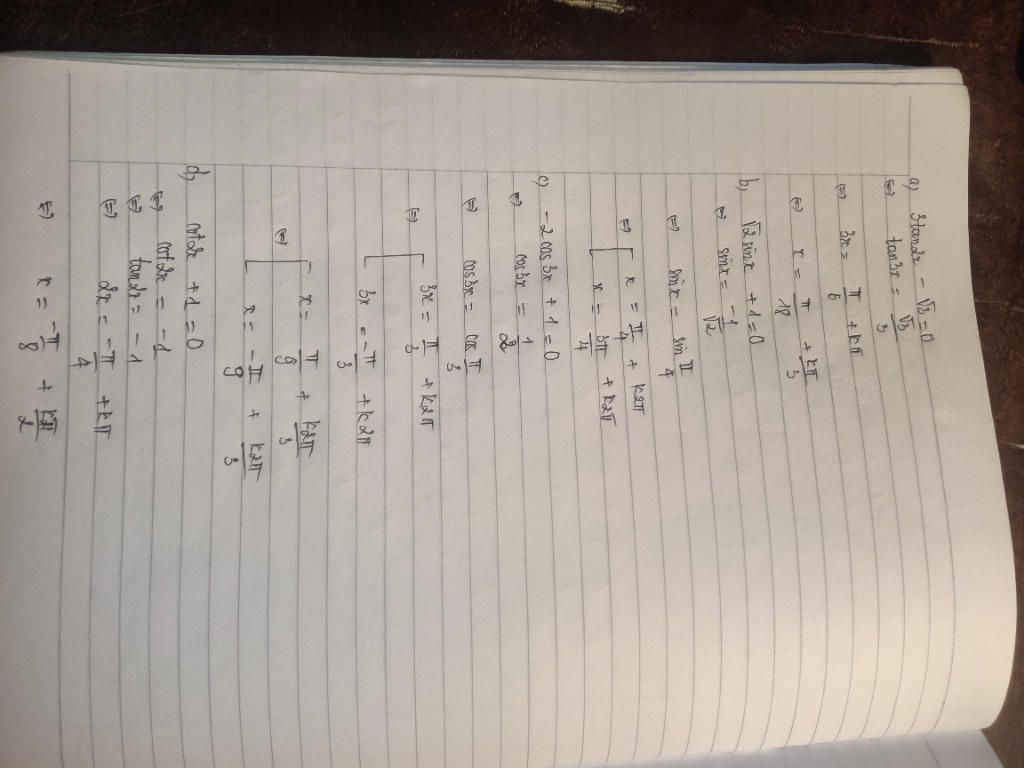 a) 3tan2x - √3 = 0
⇔ tan3x = √3/3
⇔ 3x = π/6 + kπ
⇔ x = π/18 + kπ/3
b) √2 sinx + 1 = 0
⇔ sinx = -1/√2
⇔ sinx = sin π/4
⇔ [ x = π/4 + k2π
x = 3π/4 + k2π
c) -2cos3x + 1 = 0
⇔ cos3x = 1/2
⇔ cos3x = cos π/3
⇔ [ 3x = π/3 + k2π
3x = -π/3 + k2π
⇔ [ x = π/9 + k2π/3
x = -π/9 + k2π/3
d) cot2x + 1 = 0
⇔ cot2x = -1
⇔ tan2x = -1
⇔ 2x = -π/4 + kπ
⇔ x = -π/8 + kπ/2